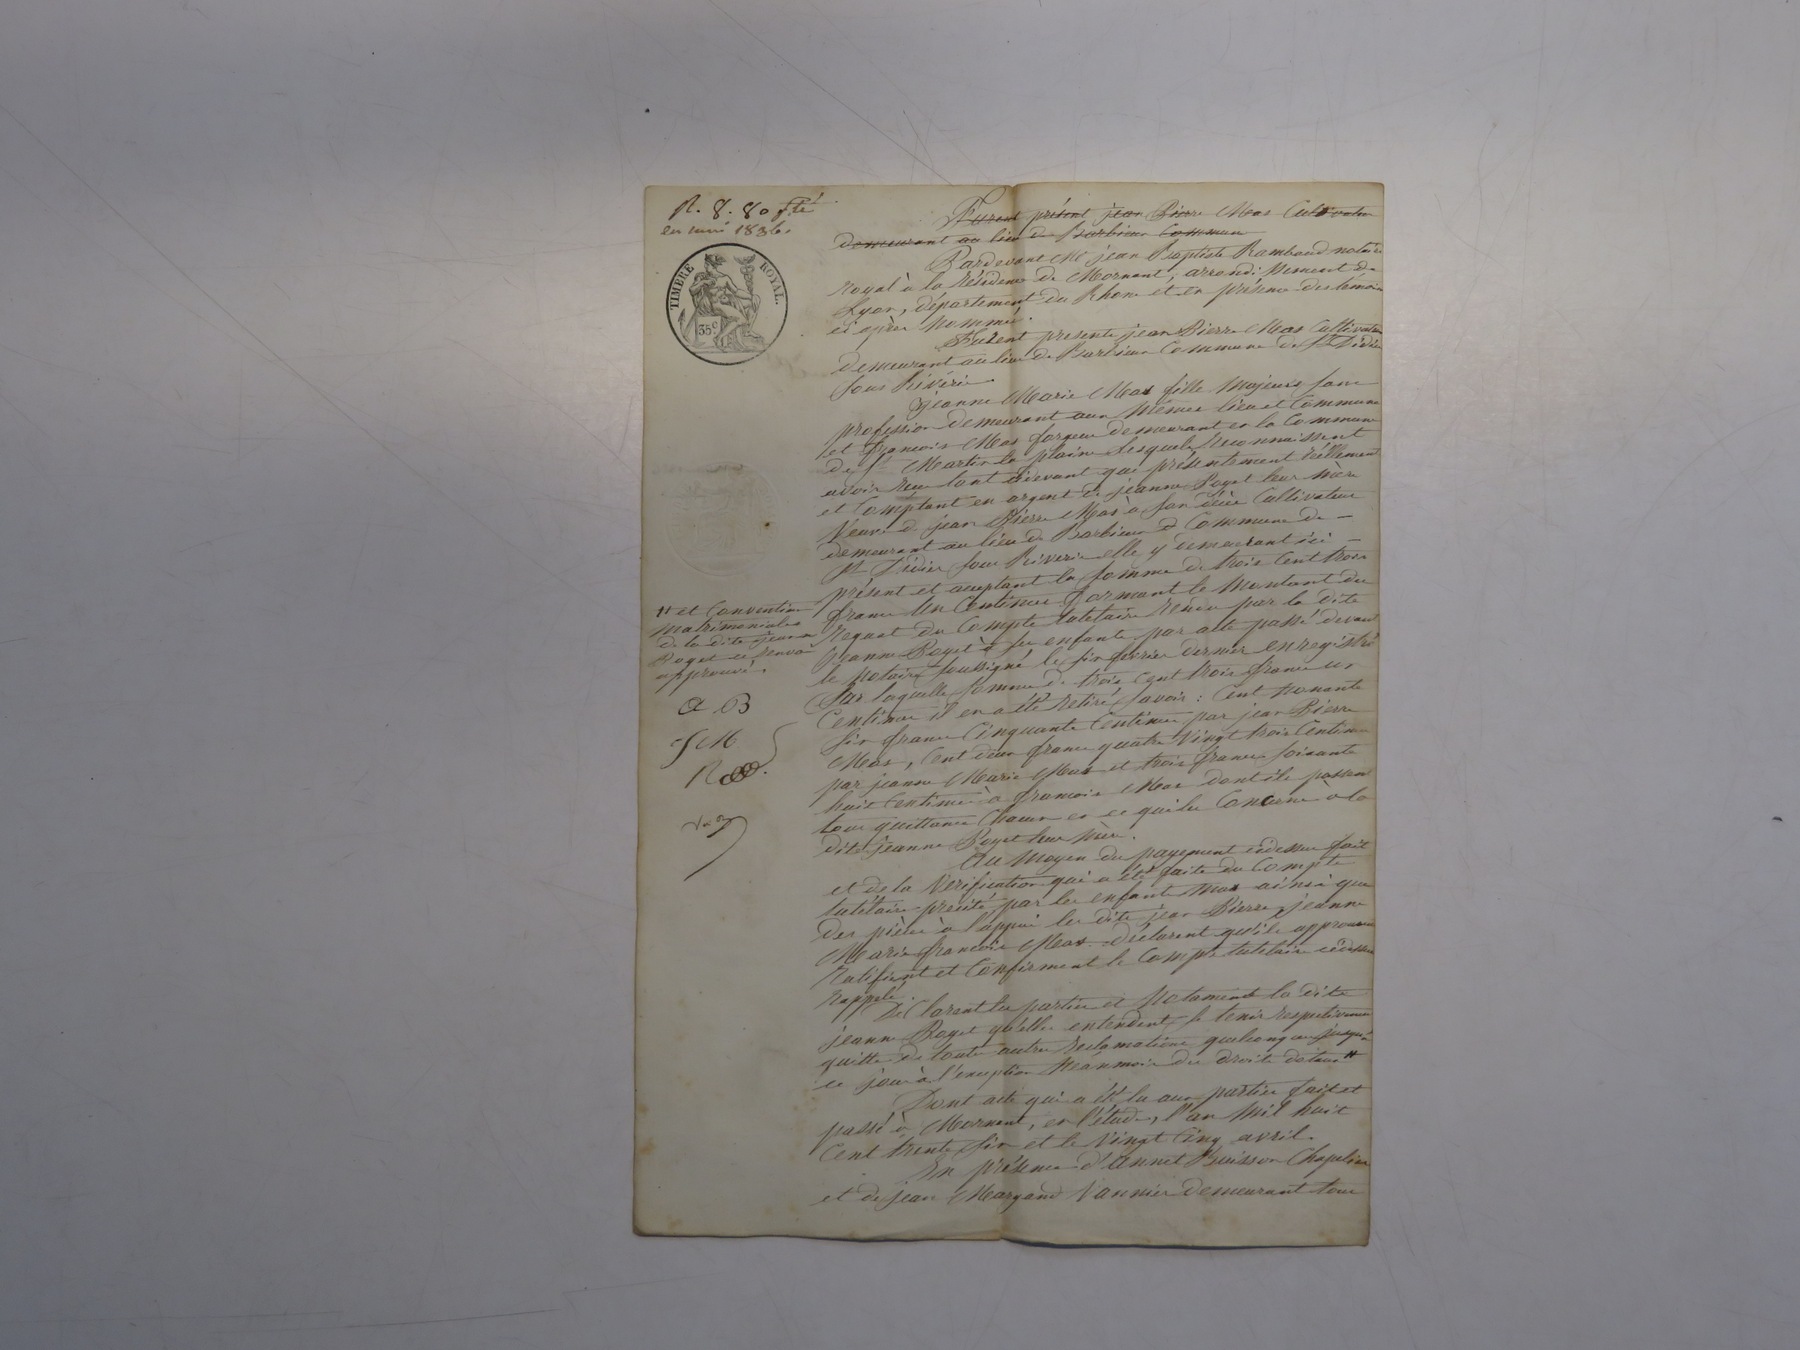 R. 8. 80
en mai 1836.
TIMBRE ROYAL.
35c
Furent présent jean Pierre Mas Cultivateur
demeurant au lieu de Barbieux Commune
Pardevant Me jean Baptiste Rambaud notaire
royal à la résidence de Mornant, arrondissement de
Lyon, département du Rhone et en présence des témoins
ci après nommés.
Furent presents jean Pierre Mas Cultivateur
demeurant au lieu de Barbieux Commune de St Didier
sous Riverie
jeanne Marie Mas fille Majeure sans
profession demeurant aux mêmes lieu et Commune
et françois Mas forgeur demeurant en la Commune
de St Martin la plaine lesquels reconnaissent
avoir reçu tant cidevant que présentement réellement
et Comptant en argent de jeanne Poyet leur mère
Veuve de jean Pierre Mas à son décès Cultivateur
demeurant au lieu de Barbieux Commune de
St Didier sous Riverie elle y demeurant ici
présent et acceptant la somme de trois Cent trois
francs Un Centimes formant le Montant du
requet du Compte tutelaire rendu par la dite
jeanne Poyet à ses enfants par acte passé devant
le Notaire soussigné le six fevrier dernier enregistré
Sur laquelle somme de trois Cent trois francs un
Centimes il en a été retiré Savoir : Cent nonante
Six francs Cinquante Centimes par jean Pierre
Mas, Cent deux francs quatre Vingt trois Centimes
par jeanne Marie Mas et trois francs soixante
huit Centimes à françois Mas dont ils passent
tous quittance Chacun en ce qui les Concerne à la
dite jeanne Poyet leur Mère.
Au Moyen du payement cidessus fait
et de la Vérification qui a été faite du Compte
tutélaire présenté par les enfants Mas ainsi que
des pièces à l'appui les dits jean Pierre, jeanne
Marie françois Mas déclarent qu'ils approuvent
ratifient et Confirment le Compte tutélaire cidessus
rappelé.
Déclarent les parties et Notament la dite
jeanne Poyet qu'elles entendent se tenir respectivement
quitte de toute autre reclamations quelconque jusqu'à
ce jour à l'exception Néanmoins des droits dotaux #
Dont acte qui a été lu aux parties fait et
passé à Mornant, en l'étude, l'an Mil huit
Cent trente Six et le Vingt Cinq avril.
En présence d'annet Buisson Chapelier
et de jean Margand Vannier demeurant tous
# et Convention
Matrimoniales
de la dite jeanne
Poyet ce renvoi
approuvé.
a B
J M
R